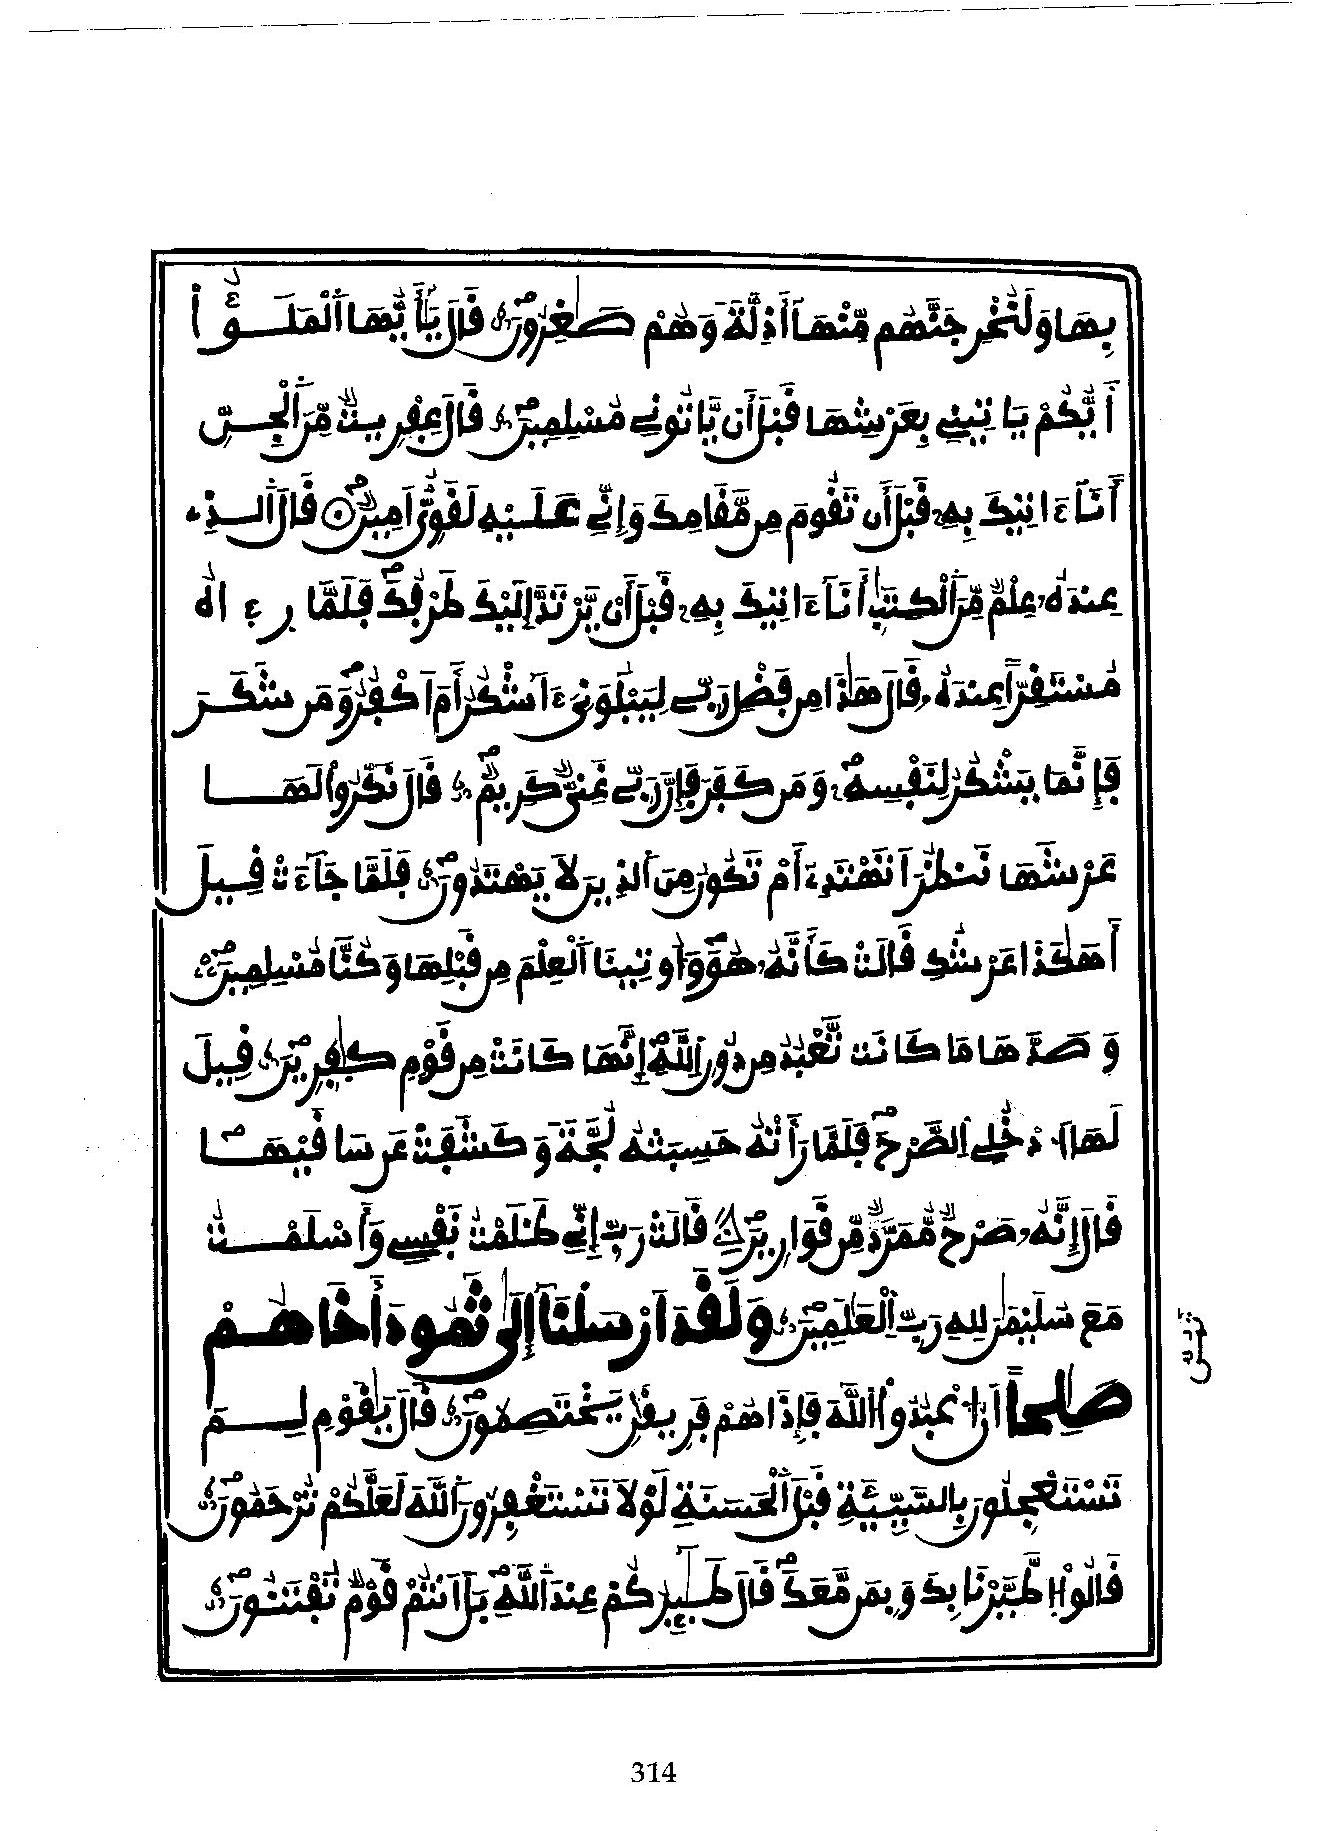 بِهَا وَلَنُخْرِجَنَّهُم مِّنْهَآ أَذِلَّةً وَهُمْ صَٰغِرُونَ قَالَ يَٰٓأَيُّهَا اَ۬لْمَلَؤُاْ
أَيُّكُمْ يَاتِينِے بِعَرْشِهَا قَبْلَ أَنْ يَّاتُونِے مُسْلِمِينَ قَالَ عِفْرِيتٌ مِّنَ اَ۬لْجِنِّ
أَنَآ ءَاتِيكَ بِهِۦ قَبْلَ أَن تَقُومَ مِن مَّقَامِكَ وَإِنِّے عَلَيْهِ لَقَوِيٌّ اَمِينٌ قَالَ اَ۬لذِے
عِندَهُۥ عِلْمٌ مِّنَ اَ۬لْكِتَٰبِ أَنَآ ءَاتِيكَ بِهِۦ قَبْلَ أَنْ يَّرْتَدَّ إِلَيْكَ طَرْفُكَ فَلَمَّا رءِاهُ
مُسْتَقِرّاً عِندَهُۥ قَالَ هَٰذَا مِن فَضْلِ رَبِّے لِيَبْلُوَنِيَ ءَآشْكُرُ أَمَ اَكْفُرُ وَمَن شَكَرَ
فَإِنَّمَا يَشْكُرُ لِنَفْسِهِۦ وَمَن كَفَرَ فَإِنَّ رَبِّے غَنِيٌّ كَرِيمٌ قَالَ نَكِّرُواْ لَهَا
عَرْشَهَا نَنظُرَ اَتَهْتَدِےٓ أَمْ تَكُونُ مِنَ اَ۬لذِينَ لَا يَهْتَدُونَ فَلَمَّا جَآءَتْ قِيلَ
أَهَٰكَذَا عَرْشُكِ قَالَتْ كَأَنَّهُۥ هُوَ وَأُوتِينَا اَ۬لْعِلْمَ مِن قَبْلِهَا وَكُنَّا مُسْلِمِينَ
وَصَدَّهَا مَا كَانَت تَّعْبُدُ مِن دُونِ اِ۬للَّهِ إِنَّهَا كَانَتْ مِن قَوْمٍ كٰ۪فِرِينَ قِيلَ
لَهَا اَ۟دْخُلِے اِ۬لصَّرْحَ فَلَمَّا رَأَتْهُ حَسِبَتْهُ لُجَّةً وَكَشَفَتْ عَن سَاقَيْهَا
قَالَ إِنَّهُۥ صَرْحٌ مُّمَرَّدٌ مِّن قَوَارِيرَ قَالَتْ رَبِّ إِنِّے ظَلَمْتُ نَفْسِے وَأَسْلَمْتُ
مَعَ سُلَيْمَٰنَ لِلهِ رَبِّ اِ۬لْعَٰلَمِينَ وَلَقَدَ اَرْسَلْنَآ إِلَىٰ ثَمُودَ أَخَاهُمْ
صَٰلِحاً اَنُ اُ۟عْبُدُواْ اُ۬للَّهَ فَإِذَا هُمْ فَرِيقَٰنِ يَخْتَصِمُونَ قَالَ يَٰقَوْمِ لِمَ
تَسْتَعْجِلُونَ بِالسَّيِّئَةِ قَبْلَ اَ۬لْحَسَنَةِ لَوْلَا تَسْتَغْفِرُونَ اَ۬للَّهَ لَعَلَّكُمْ تُرْحَمُونَ
قَالُواْ اُ۟طَّيَّرْنَا بِكَ وَبِمَن مَّعَكَ قَالَ طَٰٓئِرُكُمْ عِندَ اَ۬للَّهِ بَلَ اَنتُمْ قَوْمٌ تُفْتَنُونَ
ثمن
314